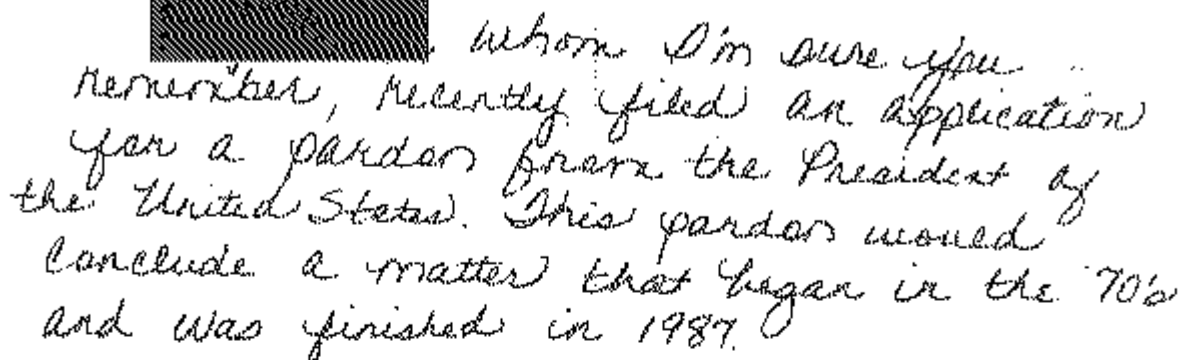 , whom I'm sure you
remember, recently filed an application
for a pardon from the President of
the United States. This pardon would
conclude a matter that began in the 70's
and was finished in 1987.